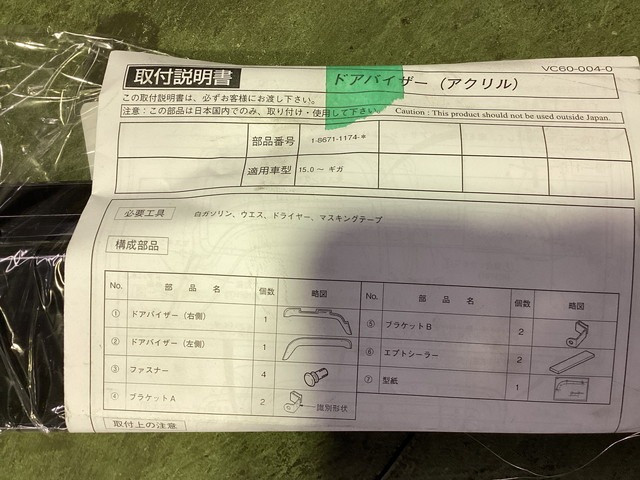 取付説明書
ドアバイザー（アクリル）
VC60-004-0
この取付説明書は、必ずお客様にお渡し下さい。
注意：この部品は日本国内でのみ、取り付け・使用して下さい。
Caution : This product should not be used outside Japan.
部品番号 1-8671-1174-*
適用車型 15.0 ～ ギガ
必要工具 白ガソリン、ウエス、ドライヤー、マスキングテープ
構成部品
No. 部品名 個数 略図
① ドアバイザー（右側） 1
② ドアバイザー（左側） 1
③ ファスナー 4
④ ブラケットA 2 識別形状
No. 部品名 個数 略図
⑤ ブラケットB 2
⑥ エプトシーラー 2
⑦ 型紙 1
取付上の注意